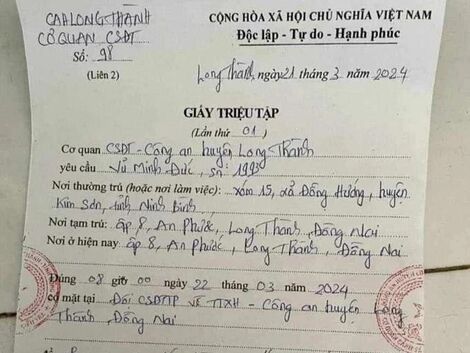 CAH LONG THÀNH
CƠ QUAN CSĐT
Số: 98
(Liên 2)
CỘNG HÒA XÃ HỘI CHỦ NGHĨA VIỆT NAM
Độc lập - Tự do - Hạnh phúc
Long Thành, ngày 21 tháng 3 năm 2024
GIẤY TRIỆU TẬP
(Lần thứ 01)
Cơ quan CSĐT - Công an huyện Long Thành
yêu cầu Vũ Minh Đức, sn: 1993
Nơi thường trú (hoặc nơi làm việc): xóm 15, xã Đồng Hướng, huyện
Kim Sơn, tỉnh Ninh Bình
Nơi tạm trú: ấp 8, An Phước, Long Thành, Đồng Nai
Nơi ở hiện nay ấp 8, An Phước, Long Thành, Đồng Nai
Đúng 08 giờ 00 ngày 22 tháng 03 năm 2024
có mặt tại Đội CSĐTTP về TTXH - Công an huyện Long
Thành, Đồng Nai